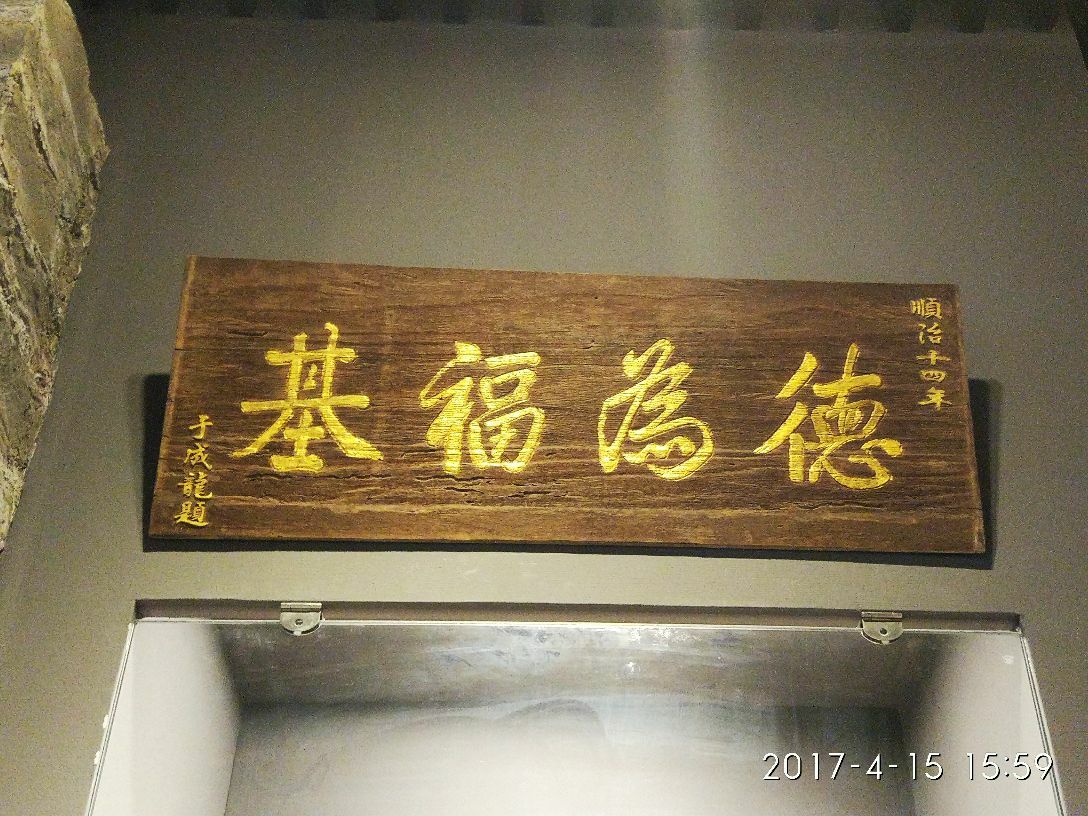 順治十四年
德為福基
于成龍題
2017-4-15 15:59